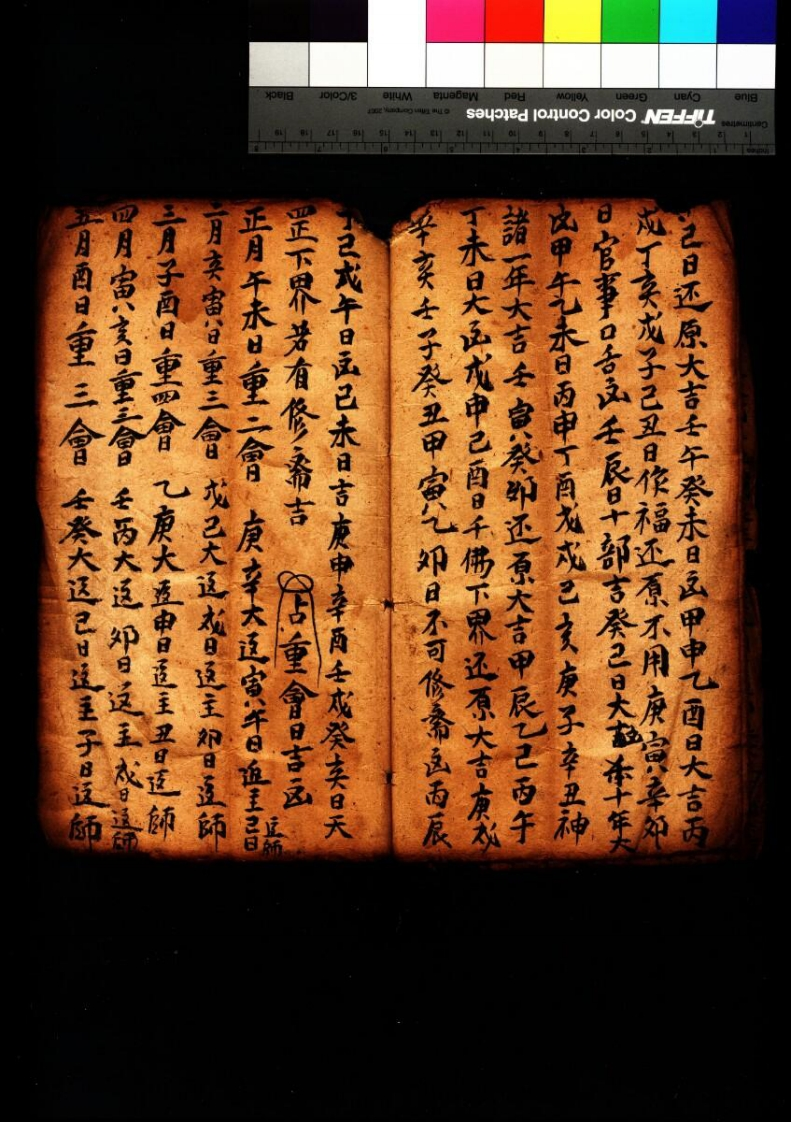 己日还原大吉壬午癸未日凶甲申乙酉日大吉丙
戍丁亥戊子己丑日作福还原不用庚寅辛卯
日官事口舌凶壬辰日十部吉癸己日大吉十年大
凶甲午乙未日丙申丁酉戊戍己亥庚子辛丑神
諸一年大吉壬寅癸卯还原大吉甲辰乙己丙午
丁未日大凶戊申己酉日千佛下界还原大吉庚戍
辛亥壬子癸丑甲寅乙卯日不可修斋凶丙辰
丁己戊午日凶己未日吉庚申辛酉壬戍癸亥日天
罡下界若有修斋吉
占重會日吉凶
正月午未日重二會 庚辛大𨑒寅午日𨑒主己日𨑒師
二月亥寅日重三會 戊己大𨑒戍日𨑒主卯日𨑒師
三月子酉日重四會 乙庚大𨑒申日𨑒主丑日𨑒師
四月寅亥日重三會 壬丙大𨑒卯日𨑒主戍日𨑒師
五月酉日重三會 壬癸大𨑒己日𨑒主子日𨑒師
Blue
Cyan
Green
Yellow
Red
Magenta
White
3/Color
Black
TIFFEN Color Control Patches
© The Tiffen Company, 2007
Centimetres
Inches